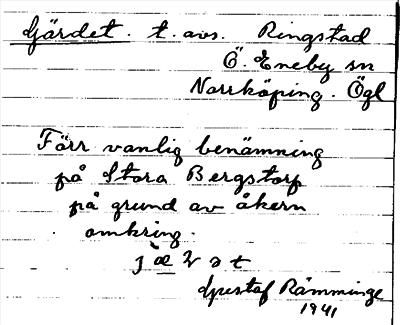 Gärdet. t. avs. Ringstad
Ö. Eneby sn
Norrköping. Ögl
Förr vanlig benämning
på Stora Bergstorp
på grund av åkern
omkring.
Gustaf Rämminge
1941